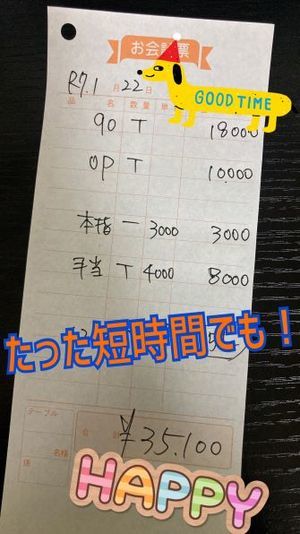 お会計票
GOOD TIME
R7.1月22日
品名 数量 単
90 T 18000
OP T 10.000
本指 一 3000 3000
手当 T 4000 8000
たった短時間でも！
テーブル
合計 ¥35.100
名様
様
HAPPY